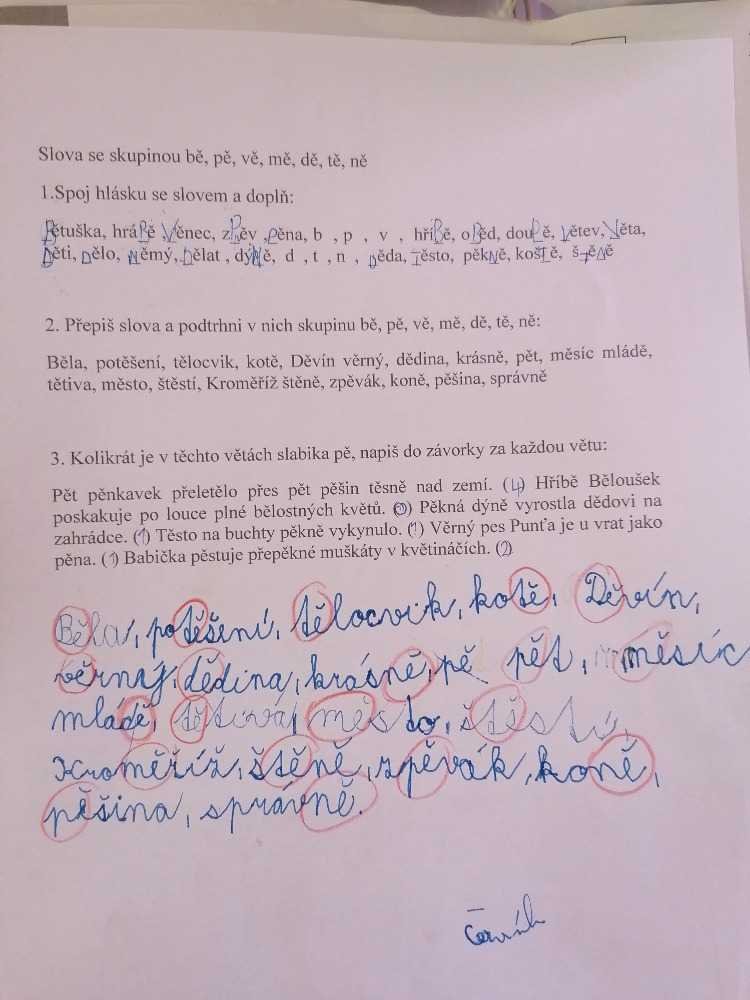 Slova se skupinou bě, pě, vě, mě, dě, tě, ně
1.Spoj hlásku se slovem a doplň:
Bětuška, hráBě ,Věnec, zPěv ,Pěna, b , p , v , hřiBě, oBěd, douPě, Větev, Věta,
Děti, Dělo, Němý, Dělat , dýNě, d , t , n , Děda, Těsto, pěkNě, košTě, šTěNě
2. Přepiš slova a podtrhni v nich skupinu bě, pě, vě, mě, dě, tě, ně:
Běla, potěšení, tělocvik, kotě, Děvín věrný, dědina, krásně, pět, měsíc mládě,
tětiva, město, štěstí, Kroměříž štěně, zpěvák, koně, pěšina, správně
3. Kolikrát je v těchto větách slabika pě, napiš do závorky za každou větu:
Pět pěnkavek přeletělo přes pět pěšin těsně nad zemí. (4) Hříbě Běloušek
poskakuje po louce plné bělostných květů. (0) Pěkná dýně vyrostla dědovi na
zahrádce. (1) Těsto na buchty pěkně vykynulo. (1) Věrný pes Punťa je u vrat jako
pěna. (1) Babička pěstuje přepěkné muškáty v květináčích. (2)
Běla, potěšení, tělocvik, kotě, Děvín,
věrný, dědina, krásně, pě pět, měsíc
mládě, tětiva, město, štěstí,
Kroměříž, štěně, zpěvák, koně,
pěšina, správně.